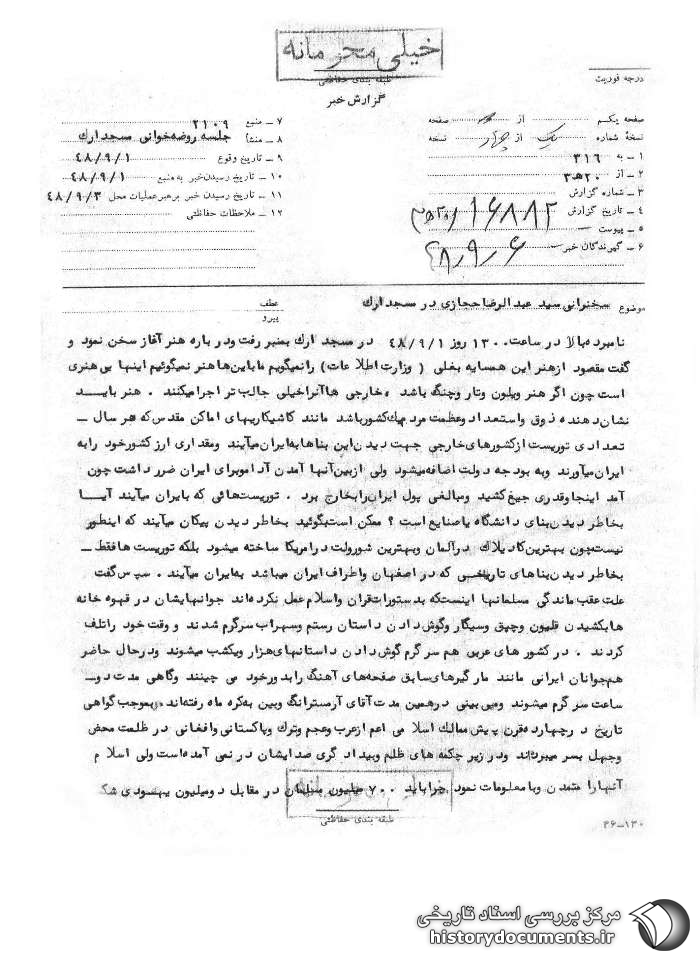 خیلی محرمانه
طبقه بندی حفاظتی
درجه فوریت
گزارش خبر
صفحه یکم از صفحه
نسخهٔ شماره یک از چهار نسخه
۱ ـ به ۳۱۶
۲ ـ از ۲۰ هـ ۳
۳ ـ شماره گزارش
۴ ـ تاریخ گزارش ۱۶۸۸۲
۵ ـ پیوست
۶ ـ گیرندگان خبر ۴۸/۹/۶
۷ ـ منبع ۲۱۰۹
۸ ـ منشأ جلسه روضه‌خوانی مسجد ارك
۹ ـ تاریخ وقوع ۴۸/۹/۱
۱۰ ـ تاریخ رسیدن خبر به منبع ۴۸/۹/۱
۱۱ ـ تاریخ رسیدن خبر برهبر عملیات محل ۴۸/۹/۳
۱۲ ـ ملاحظات حفاظتی
موضوع سخنرانی سید عبدالرضا حجازی در مسجد ارك
عطف
پیرو
نامبرده بالا در ساعت ۱۳۰۰ روز ۴۸/۹/۱ در مسجد ارك بمنبر رفت ودر باره هنر آغاز سخن نمود و
گفت مقصود از هنر این همسایه بغلی ( وزارت اطلاعات ) را نمیگویم ما باین‌ها هنر نمیگوئیم اینها بی هنری
است چون اگر هنر ویلون وتار وچنگ باشد خارجی ها آنرا خیلی جالب تر اجرا میکنند . هنر بایـد
نشان دهنده ذوق واستعداد وعظمت مردم یك کشور باشد مانند کاشیکاریهای اماکن مقدس که هر سال ـ
تعدادی توریست از کشورهای خارجی جهت دیدن این بناها به ایران میآیند ومقداری ارز کشور خود را به
ایران میآورند وبه بودجه دولت اضافه میشود ولی از بین آنها آمدن آدامو برای ایران ضرر داشت چون
آمد اینجا وقدری جیغ کشید ومبالغی پول ایران را بخارج برد . توریست هائی که بایران میآیند آیـا
بخاطر دیدن بنای دانشگاه یا صنایع است ؟ ممکن است بگوئید بخاطر دیدن پیکان میآیند که اینطور
نیست چون بهترین کادیلاك در آلمان وبهترین شورولت در امریکا ساخته میشود بلکه توریست ها فقط ـ
بخاطر دیدن بناهای تاریخـی که در اصفهان واطراف ایران میباشد به ایران میآیند . سپس گفت
علت عقب ماندگی مسلمانها اینست که بدستورات قران واسلام عمل نکرده اند جوانهایشان در قهوه خانه
ها بکشیدن قلیون وچپق وسیگار وگوش دادن داستان رستم وسهراب سرگرم شدند و وقت خود را تلف
کردند . در کشور های عربی هم سرگرم گوش دادن داستانهای هزار ویکشب میشوند ودر حال حاضر
هم جوانان ایرانی مانند مارگیرهای سابق صفحه‌های آهنگ را بدور خود می چینند وگاهی مدت دو ـ
ساعت سرگرم میشوند ومی بینی در همین مدت آقای آرمسترانگ وبین به کره ماه رفته‌اند بموجب گواهی
تاریخ در چهارده قرن پیش ممالك اسلامی اعم از عرب وعجم وترك وپاکستانی وافغانی در ظلمت محض
وجهل بسر میبردند ودر زیر چکمه های ظلم وبیدادگری صدایشان در نمی آمده است ولی اسلام
آنها را متمدن وبا معلومات نمود چرا باید ۷۰۰ میلیون مسلمان در مقابل دو میلیون یهودی شکـ
طبقه بندی حفاظتی
۳۶ـ۱۳۰
مرکز بررسی اسناد تاریخی
historydocuments.ir